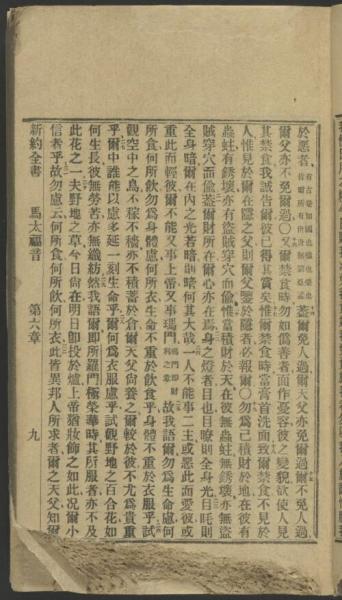 於惡者有古卷加國也權也榮也皆爾所有世世無窮亞孟蓋爾免人過爾天父亦免爾過爾不免人過
爾父亦不免爾過○又爾禁食時勿如僞善者面作憂容彼之變貌欲使人見
其禁食我誠告爾彼已得其賞矣惟爾禁食時當膏首洗面致爾禁食不見於
人惟見於爾在隱之父則爾父鑒於隱者必報爾○勿爲己積財於地在彼有
蟲蛀有銹壞亦有盜賊穿穴而偷惟當積財於天在彼無蟲蛀無銹壞亦無盜
賊穿穴而偷蓋爾財所在爾心亦在焉身之燈者目也目瞭則全身光目眊則
全身暗爾在內之光若暗則暗何其大哉一人不能事二主或惡此而愛彼或
重此而輕彼爾不能又事上帝又事瑪門瑪門即財利之意故我語爾勿爲生命慮何
所食何所飲勿爲身體慮何所衣生命不重於飲食乎身體不重於衣服乎試
觀空中之鳥不稼不穡亦不積蓄於倉爾天父尙養之爾較於彼不尤爲貴重
乎爾中誰能以慮多延一刻生命乎爾何爲衣服慮乎試觀野地之百合花如
何生長彼無勞苦亦無織紡然我語爾即所羅門極榮華時其所服者亦不及
此花之一夫野地之草今日尙在明日卽投於爐上帝猶妝飾之如此況爾小
信者乎故勿慮云何所食何所飲何所衣此皆異邦人所求者爾之天父知爾
新約全書 馬太福音 第六章 九